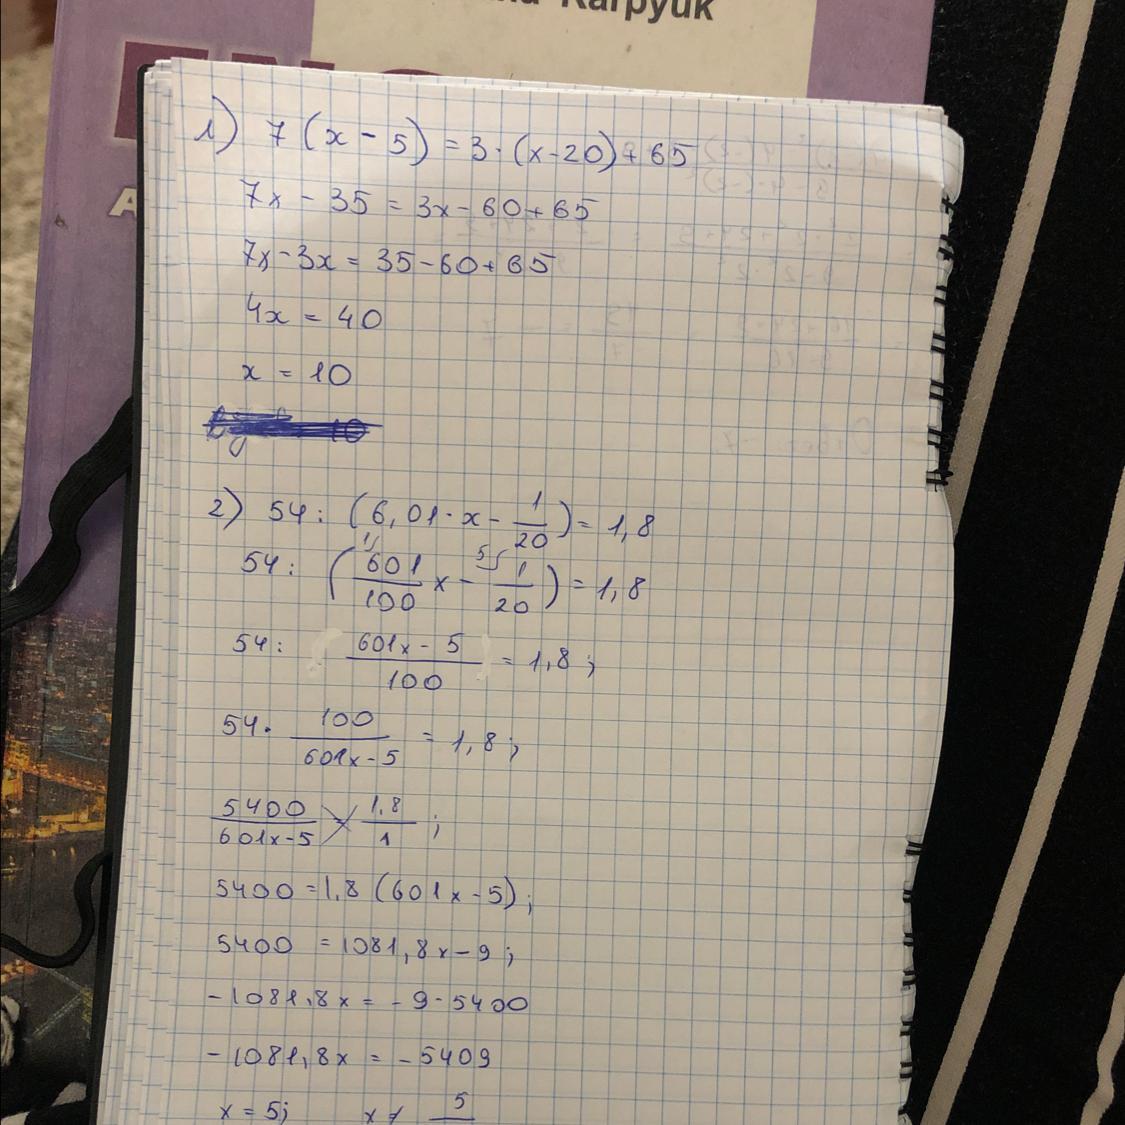 Karpyuk
1) 7 (x - 5) = 3 · (x-20) + 65
7x - 35 = 3x - 60 + 65
7x - 3x = 35 - 60 + 65
4x = 40
x = 10
2) 54 : (6,01 · x - 1/20) = 1,8
54 : (601/100 x - 5 1/20) = 1,8
54 : (601x - 5)/100 = 1,8 ;
54 · 100/(601x - 5) = 1,8 ;
5400/(601x - 5) 1,8/1 ;
5400 = 1,8 (601x - 5) ;
5400 = 1081,8x - 9 ;
- 1081,8x = - 9 - 5400
- 1081,8x = - 5409
x = 5; x ≠ 5